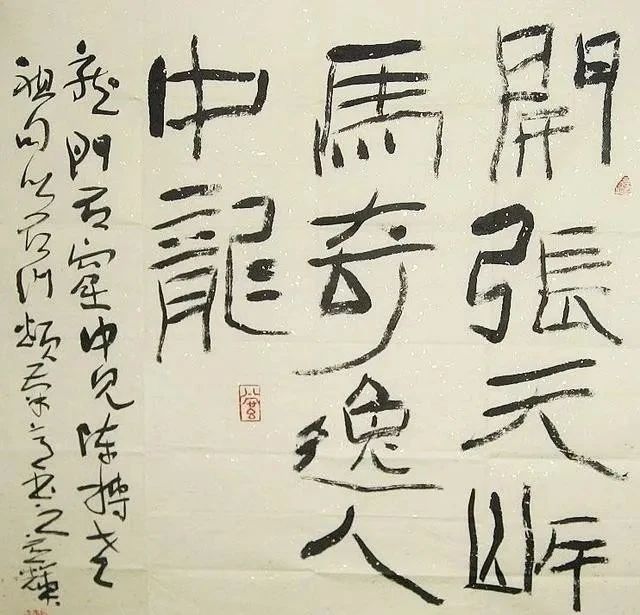 開張天岸
馬奇逸人
中龍
龍門石窟中見陳摶老
祖句以石門頌筆意書之